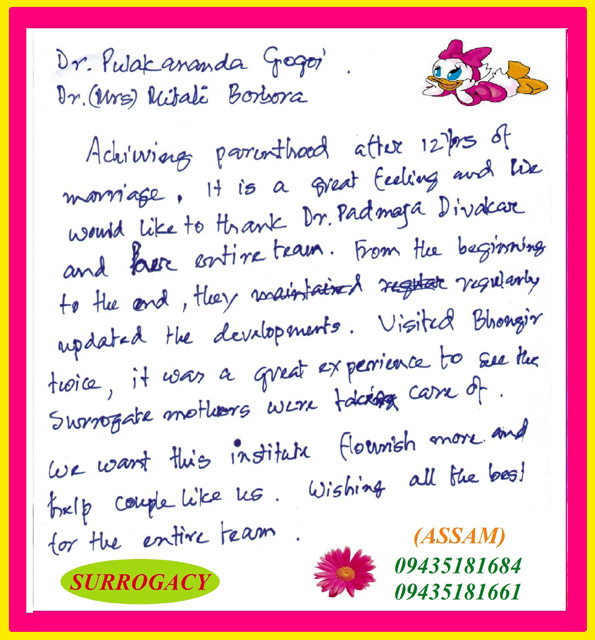 Dr. Pulakananda Gogoi.
Dr.(Mrs) Mitali Borbora
Achieving parenthood after 12 yrs of
marriage, it is a great feeling and we
would like to thank Dr. Padmaja Divakar
and her entire team. From the beginning
to the end, they maintained regular regularly
updated the developments. Visited Bhongir
twice, it was a great experience to see the
surrogate mothers were taking care of.
We want this institute flourish more and
help couple like us. Wishing all the best
for the entire team.
(ASSAM)
SURROGACY
09435181684
09435181661